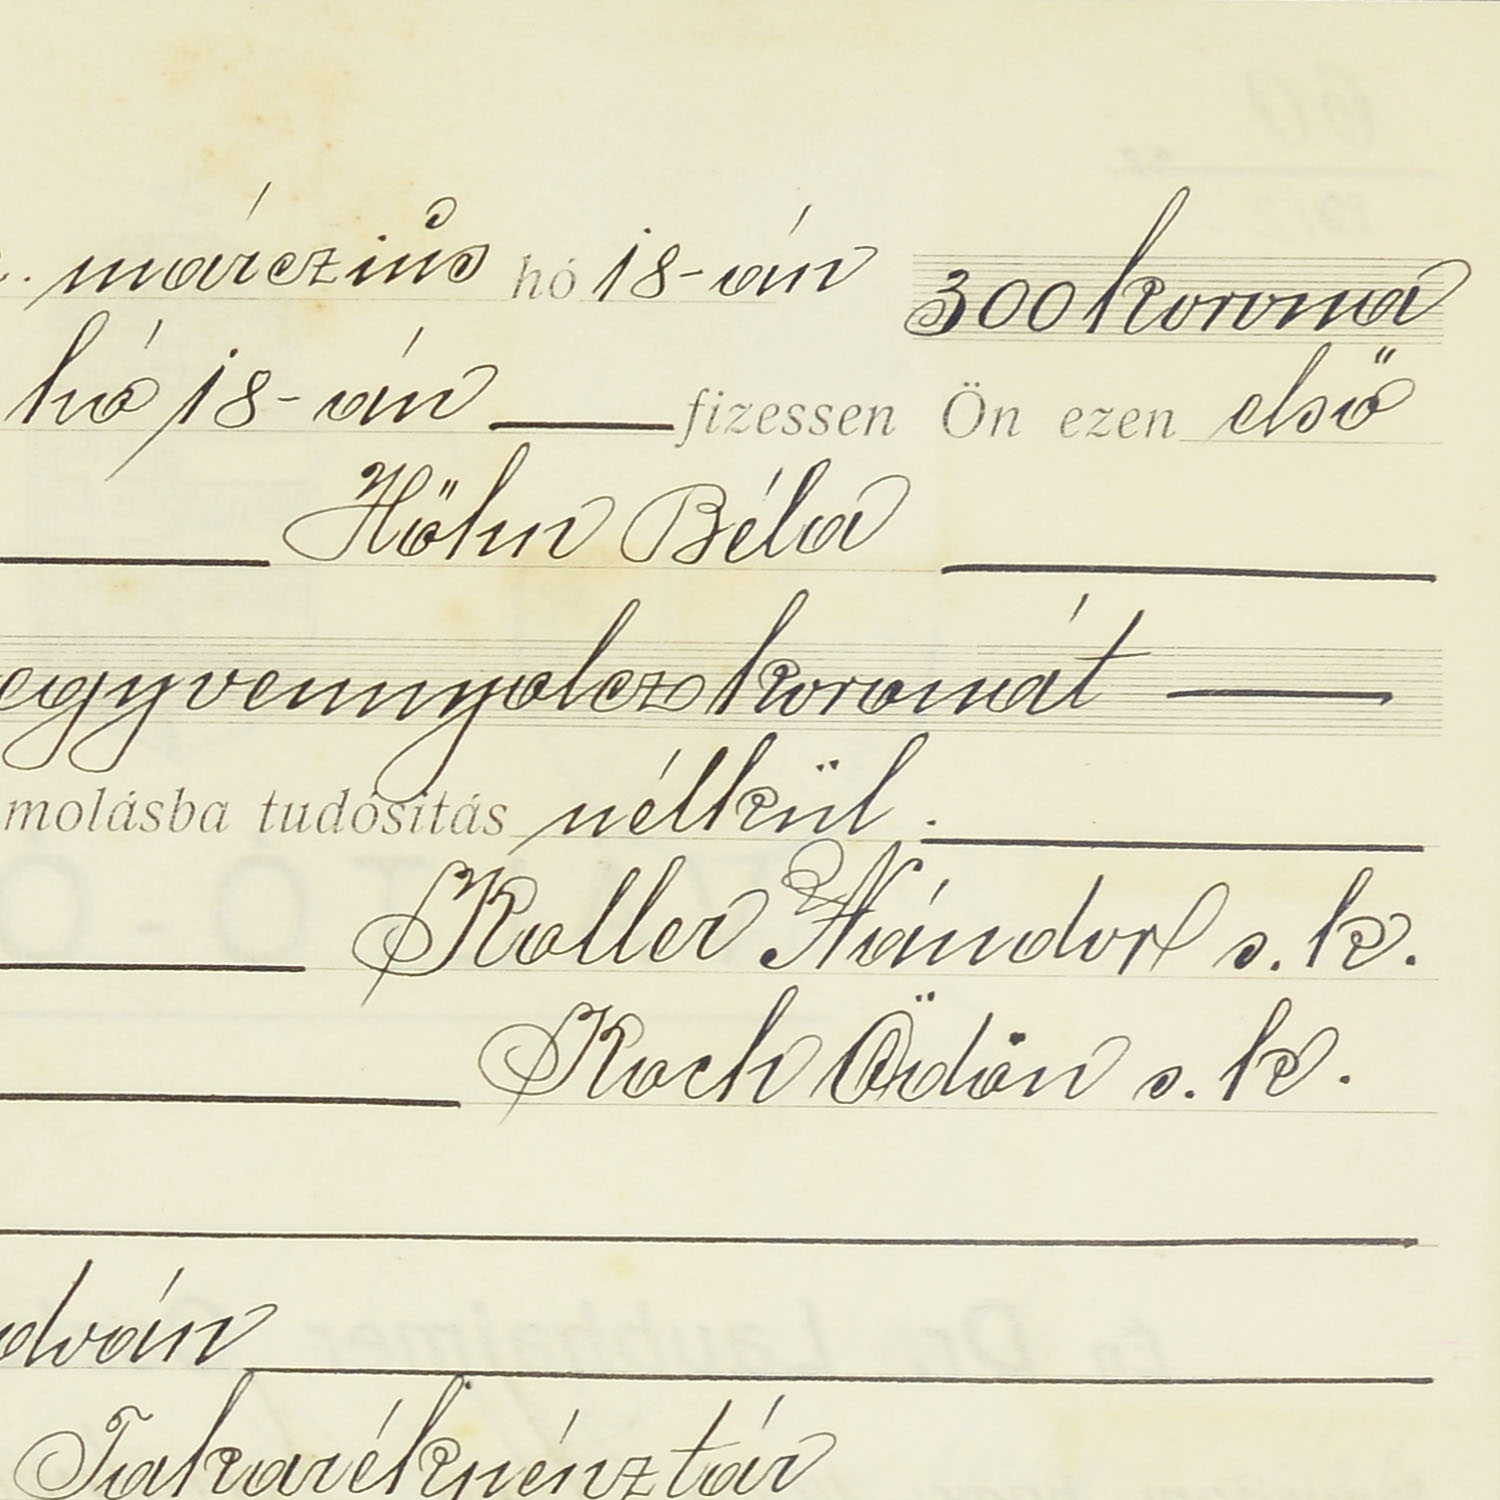 márczius hó 18-án 300 korona
hó 18-án fizessen Ön ezen első
Höhn Béla
egyvennyolcz koronát
molásba tudósítás nélkül.
Koller Nándor s. k.
Koch Ödön s. k.
dván
Takarékpénztár